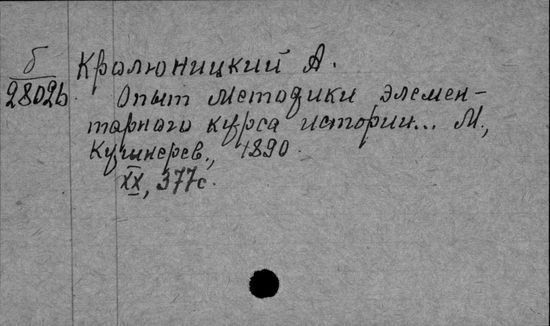 б
2802б
Кролюницкий А.
Опыт методики элемен-
тарного курса истории... М.,
Кушнерев, 1890.
XX, 377с.